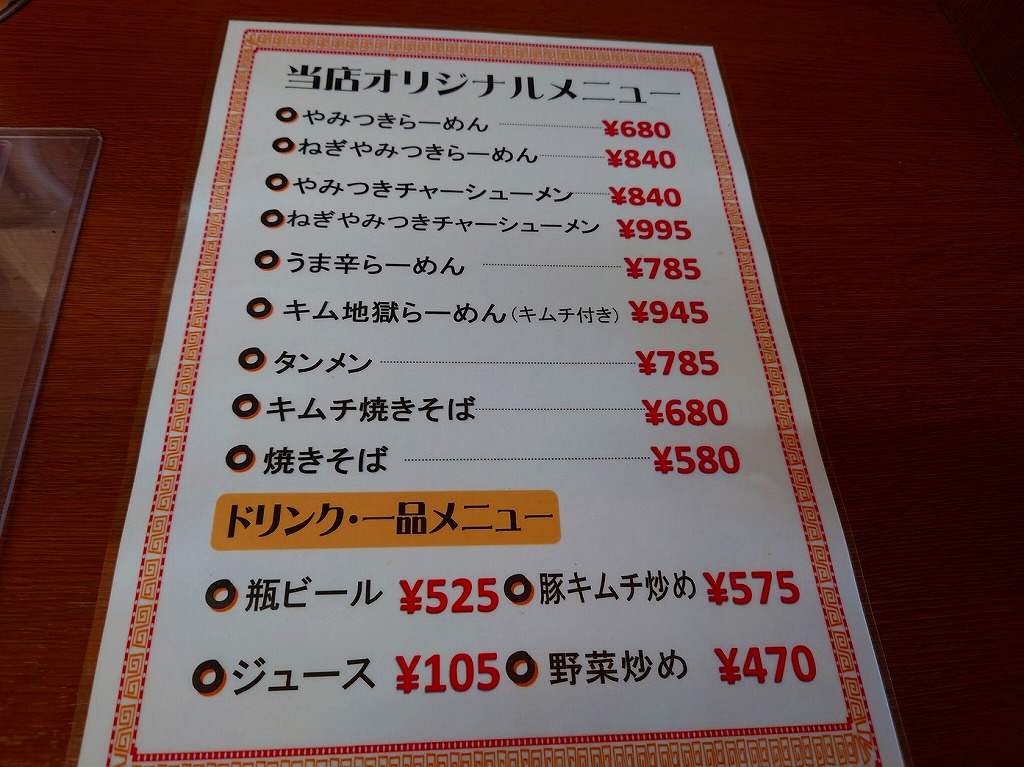 当店オリジナルメニュー
やみつきらーめん ¥680
ねぎやみつきらーめん ¥840
やみつきチャーシューメン ¥840
ねぎやみつきチャーシューメン ¥995
うま辛らーめん ¥785
キム地獄らーめん(キムチ付き) ¥945
タンメン ¥785
キムチ焼きそば ¥680
焼きそば ¥580
ドリンク・一品メニュー
瓶ビール ¥525 豚キムチ炒め ¥575
ジュース ¥105 野菜炒め ¥470